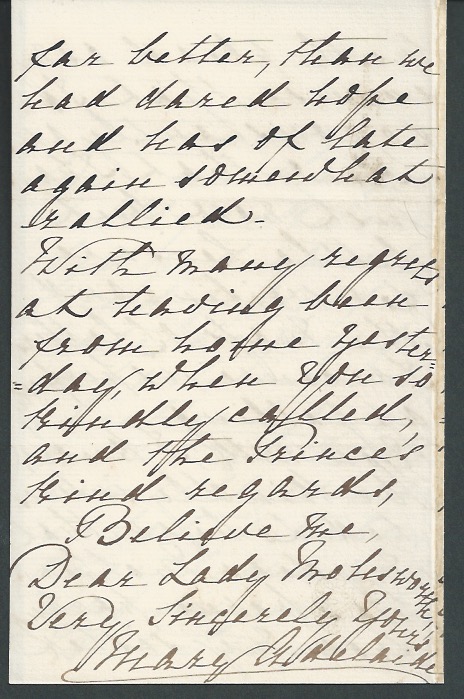 far better, than we
had dared hope
and has of late
again somewhat
rallied.
With many regrets
at having been
from home yester=
=day, when you so
kindly called,
and the Prince's
kind regards,
Believe me,
Dear Lady Molesworth,
Very Sincerely Yours
Mary Adelaide